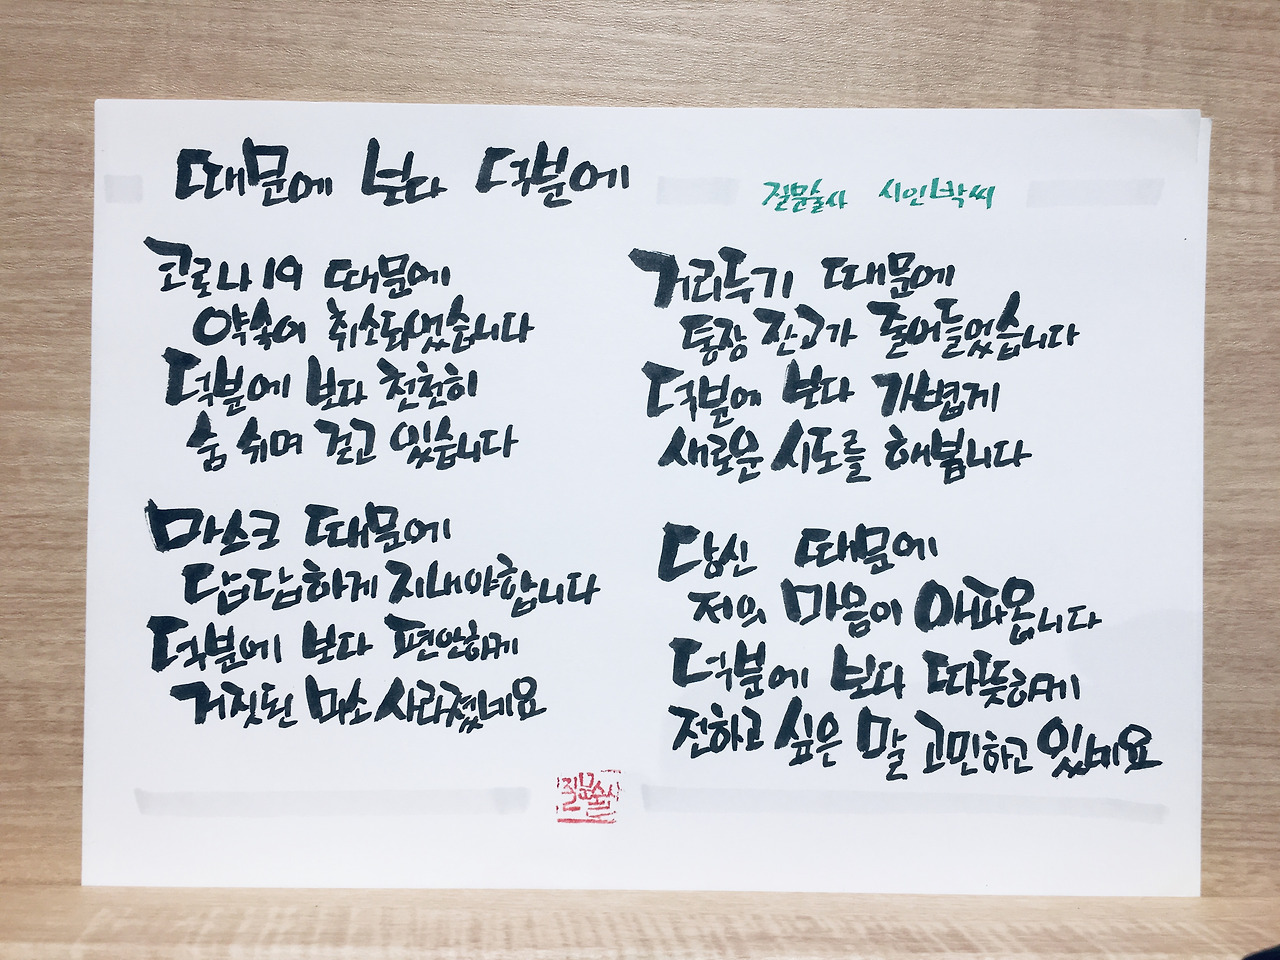 때문에 보다 덕분에
질문술사 시인박씨
코로나19 때문에
약속이 취소되었습니다
덕분에 보다 천천히
숨 쉬며 걷고 있습니다
마스크 때문에
답답하게 지내야합니다
덕분에 보다 편안하게
거짓된 미소 사라졌네요
거리두기 때문에
통장 잔고가 줄어들었습니다
덕분에 보다 가볍게
새로운 시도를 해봅니다
당신 때문에
저의 마음이 아파옵니다
덕분에 보다 따뜻하게
전하고 싶은 말 고민하고 있네요
질문술사